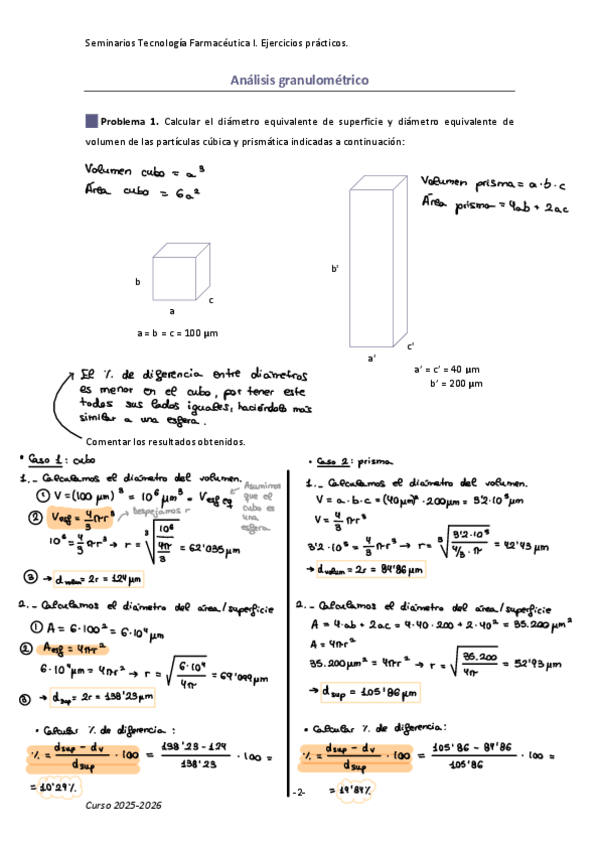 Seminarios Tecnología Farmacéutica I. Ejercicios prácticos.
Análisis granulométrico
Problema 1. Calcular el diámetro equivalente de superficie y diámetro equivalente de
volumen de las partículas cúbica y prismática indicadas a continuación:
Volumen cubo = a³
Área cubo = 6a²
Volumen prisma = a·b·c
Área prisma = 4ab + 2ac
b
a
c
a = b = c = 100 µm
b'
a'
c'
a' = c' = 40 µm
b' = 200 µm
El % de diferencia entre diámetros
es menor en el cubo, por tener este
todos sus lados iguales, haciéndolo más
similar a una esfera.
Comentar los resultados obtenidos.
• Caso 1: cubo
1.- Calculamos el diámetro del volumen.
① V = (100 µm)³ = 10⁶ µm³ = Vesf eq
Asumimos
que el
cubo es
una
esfera
② Vesf = 4/3 πr³ despejamos r
10⁶ = 4/3 πr³ → r = ∛(10⁶ / (4π/3)) = 62'035 µm
③ → dvolum = 2r = 124 µm
2.- Calculamos el diámetro del área/superficie
① A = 6·100² = 6·10⁴ µm
② Aesf = 4πr²
6·10⁴ µm = 4πr² → r = √(6·10⁴ / 4π) = 69'099 µm
③ → dsup = 2r = 138'23 µm
• Calcular % de diferencia :
% = (dsup - dv) / dsup · 100 = (138'23 - 124) / 138'23 · 100 =
= 10'29%
• Caso 2: prisma
1.- Calculamos el diámetro del volumen.
V = a·b·c = (40 µm)²·200 µm = 3'2·10⁵ µm
V = 4/3 πr³
3'2·10⁵ = 4/3 πr³ → r = ∛(3'2·10⁵ / (4/3·π)) = 42'43 µm
→ dvolum = 2r = 84'86 µm
2.- Calculamos el diámetro del área/superficie
A = 4·ab + 2ac = 4·40·200 + 2·40² = 35.200 µm²
A = 4πr²
35.200 µm² = 4πr² → r = √(35.200 / 4π) = 52'93 µm
→ dsup = 105'86 µm
• Calcular % de diferencia:
% = (dsup - dv) / dsup · 100 = (105'86 - 84'86) / 105'86 · 100 =
= 19'84%
-2-
Curso 2025-2026